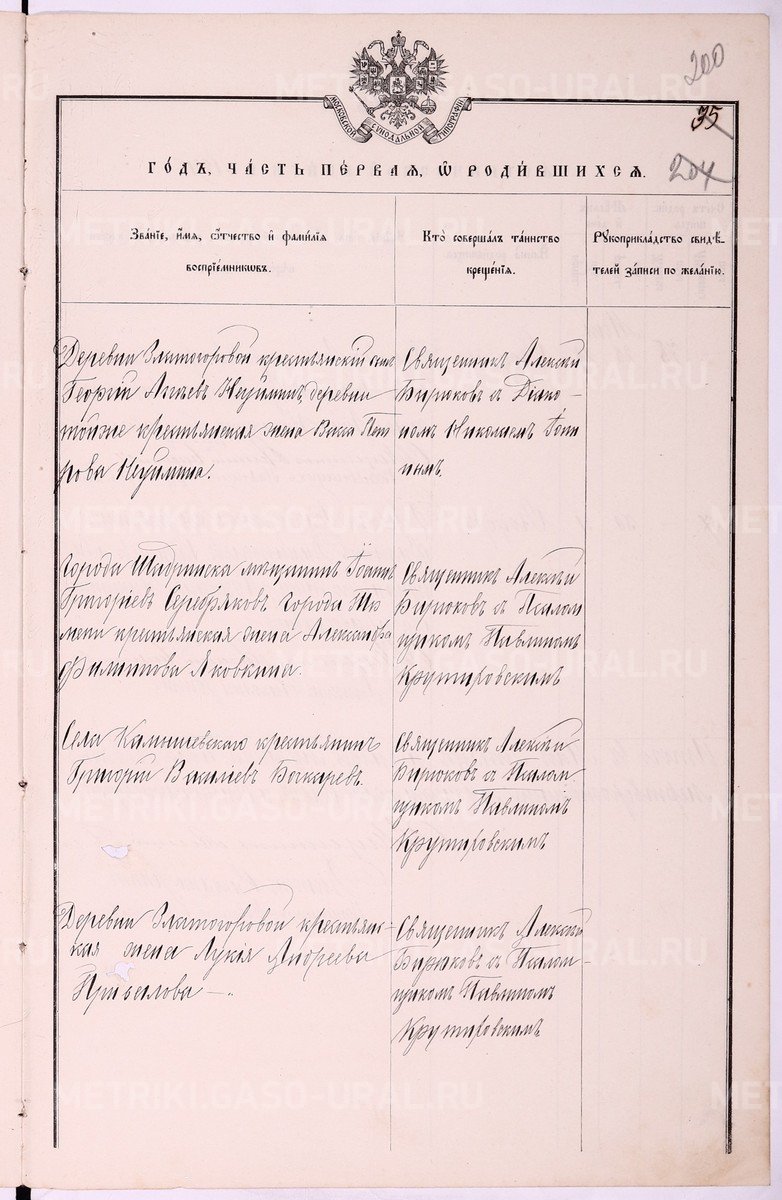 200
МОСКОВСКОЙ СѴНОДАЛЬНОЙ ТИПОГРАФІИ
35
204
ГО́ДЪ, ЧА́СТЬ ПЕ́РВАЯ, Ѽ РОДИ́ВШИХСЯ.
Зва́нїе, и҆́мя, ѻ҆́тчество и҆ фами́лїя
воспрїе́мниковъ.
Кто̀ соверша́лъ та́инство
креще́нїя.
Рꙋкоприкла́дство свидѣ́-
телей за́писи по жела́нїю.
Деревни Златогоровой крестьянскій сынъ
Георгій Неуйминъ, деревни
тойже крестьянская жена Васса Пет
рова Неуймина.
Священникъ Алексій
Бирюковъ съ Діако-
номъ Николаемъ
города Шадринска мѣщанинъ Іоаннъ
Григоріевъ Серебряковъ города Тю
мени крестьянская жена Александра
Филиппова Яковкина.
Священникъ Алексѣй
Бирюковъ съ Псалом
щикомъ Павлиномъ
Крутировскимъ
Села Камышевскаго крестьянинъ
Григорій Василіевъ Бочкаревъ.
Священникъ Алексѣй
Бирюковъ съ Псалом
щикомъ Павлиномъ
Крутировскимъ
Деревни Златогоровой крестьян-
ская жена Лукія Андреева
Священникъ Алексій
Бирюковъ съ Псалом-
щикомъ Павлиномъ
Крутировскимъ
METRIKI.GASO-URAL.RU